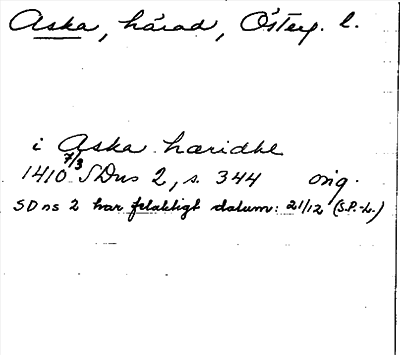 Aska, härad, Österg. l.
i Aska hæridhe
1410 7/3 SDns 2, s. 344 orig.
SDns 2 har felaktigt datum: 21/12 (S.P.-L.)